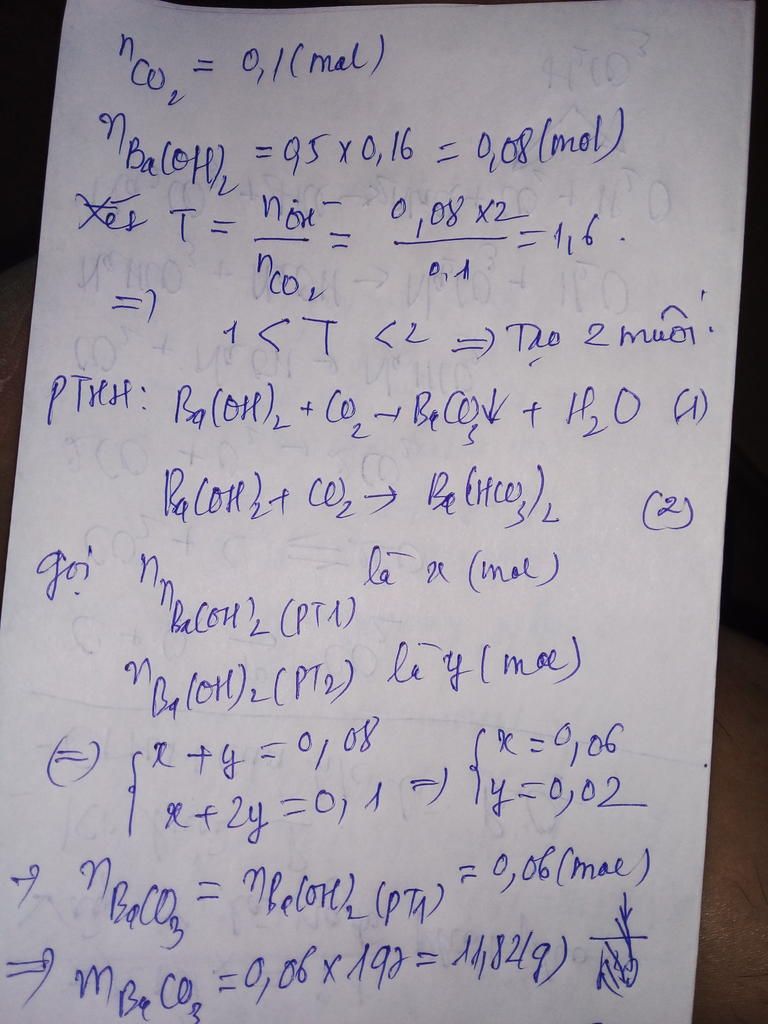 nCO₂ = 0,1 (mol)
nBa(OH)₂ = 0,5 × 0,16 = 0,08 (mol)
Xét T = nOH⁻ / nCO₂ = 0,08 × 2 / 0,1 = 1,6.
=> 1 < T < 2 => Tạo 2 muối.
PTHH: Ba(OH)₂ + CO₂ → BaCO₃↓ + H₂O (1)
Ba(OH)₂ + CO₂ → Ba(HCO₃)₂ (2)
Gọi n nBa(OH)₂ (PT1) là x (mol)
nBa(OH)₂ (PT2) là y (mol)
(=) { x + y = 0,08 => { x = 0,06
x + 2y = 0,1 y = 0,02
→ nBaCO₃ = nBa(OH)₂ (PT1) = 0,06 (mol)
=> mBaCO₃ = 0,06 × 197 = 11,82 (g)